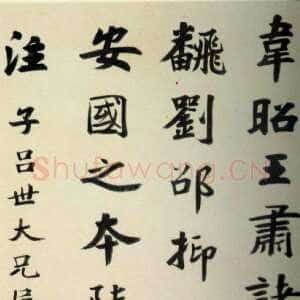 韋昭王肅
飜劉邵抑
安國之本
注
子吕世大兄
Shufawang.CN